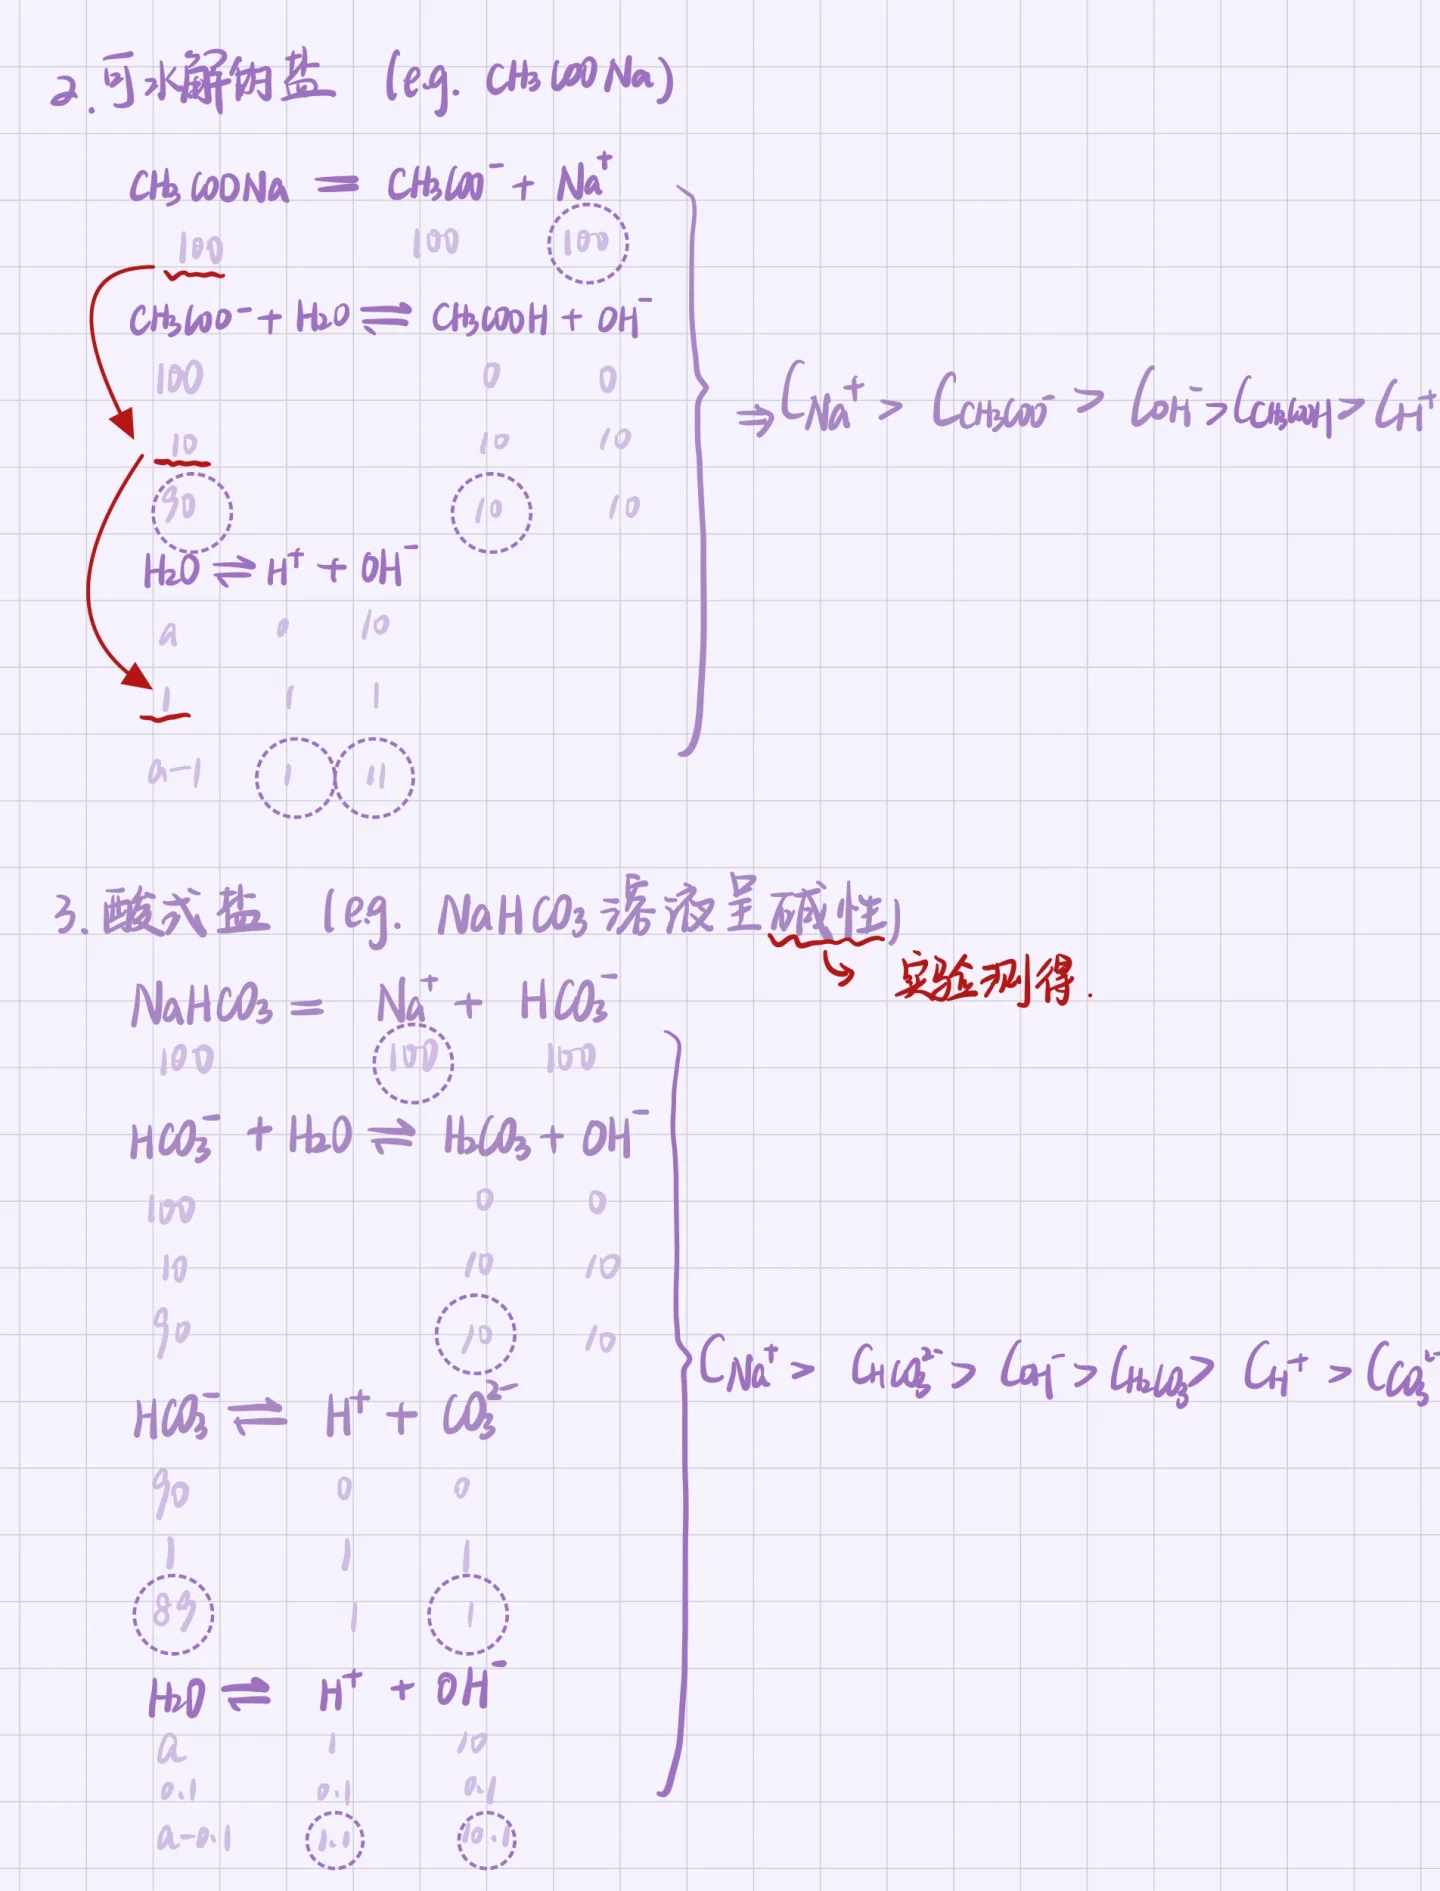 2.可水解的盐 (e.g. CH₃COONa)
CH₃COONa = CH₃COO⁻ + Na⁺
100 100 100
CH₃COO⁻ + H₂O ⇌ CH₃COOH + OH⁻
100 0 0
10 10 10
90 10 10
H₂O ⇌ H⁺ + OH⁻
a 0 10
1 1 1
a-1 1 11
⇒ C Na⁺ > C CH₃COO⁻ > C OH⁻ > C CH₃COOH > C H⁺
3.酸式盐 (e.g. NaHCO₃溶液呈碱性)
实验测得.
NaHCO₃ = Na⁺ + HCO₃⁻
100 100 100
HCO₃⁻ + H₂O ⇌ H₂CO₃ + OH⁻
100 0 0
10 10 10
90 10 10
HCO₃⁻ ⇌ H⁺ + CO₃²⁻
90 0 0
1 1 1
89 1 1
H₂O ⇌ H⁺ + OH⁻
a 1 10
0.1 0.1 0.1
a-0.1 1.1 10.1
C Na⁺ > C HCO₃²⁻ > C OH⁻ > C H₂CO₃ > C H⁺ > C CO₃²⁻